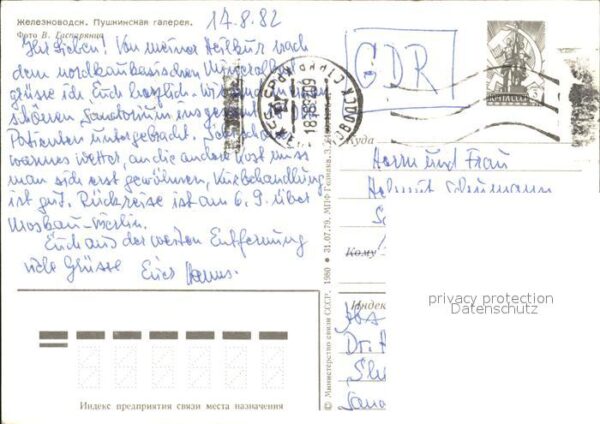 Железноводск. Пушкинская галерея.
Фото В. Гаспарянца
17.8.82
Ihr Lieben! Von meiner Heilkur nach
dem nordkaukasischen Mineralbad
grüsse ich Euch herzlich. Wir sind in einem
schönen Sanatorium insgesamt
Patienten untergebracht. Sehr schön
warmes Wetter, an die andere Kost muss
man sich erst gewöhnen, Kurbehandlung
ist gut. Rückreise ist am 6.9. über
Moskau-Berlin.
Euch aus der weiten Entfernung
viele Grüsse Euer Hannes.
GDR
ПОЧТА СССР
Куда
Herrn und Frau
Helmut
Кому
Индекс
Dr.
© Министерство связи СССР. 1980 • 31.07.79. МПФ Гознака. З.
Индекс предприятия связи места назначения
privacy protection
Datenschutz